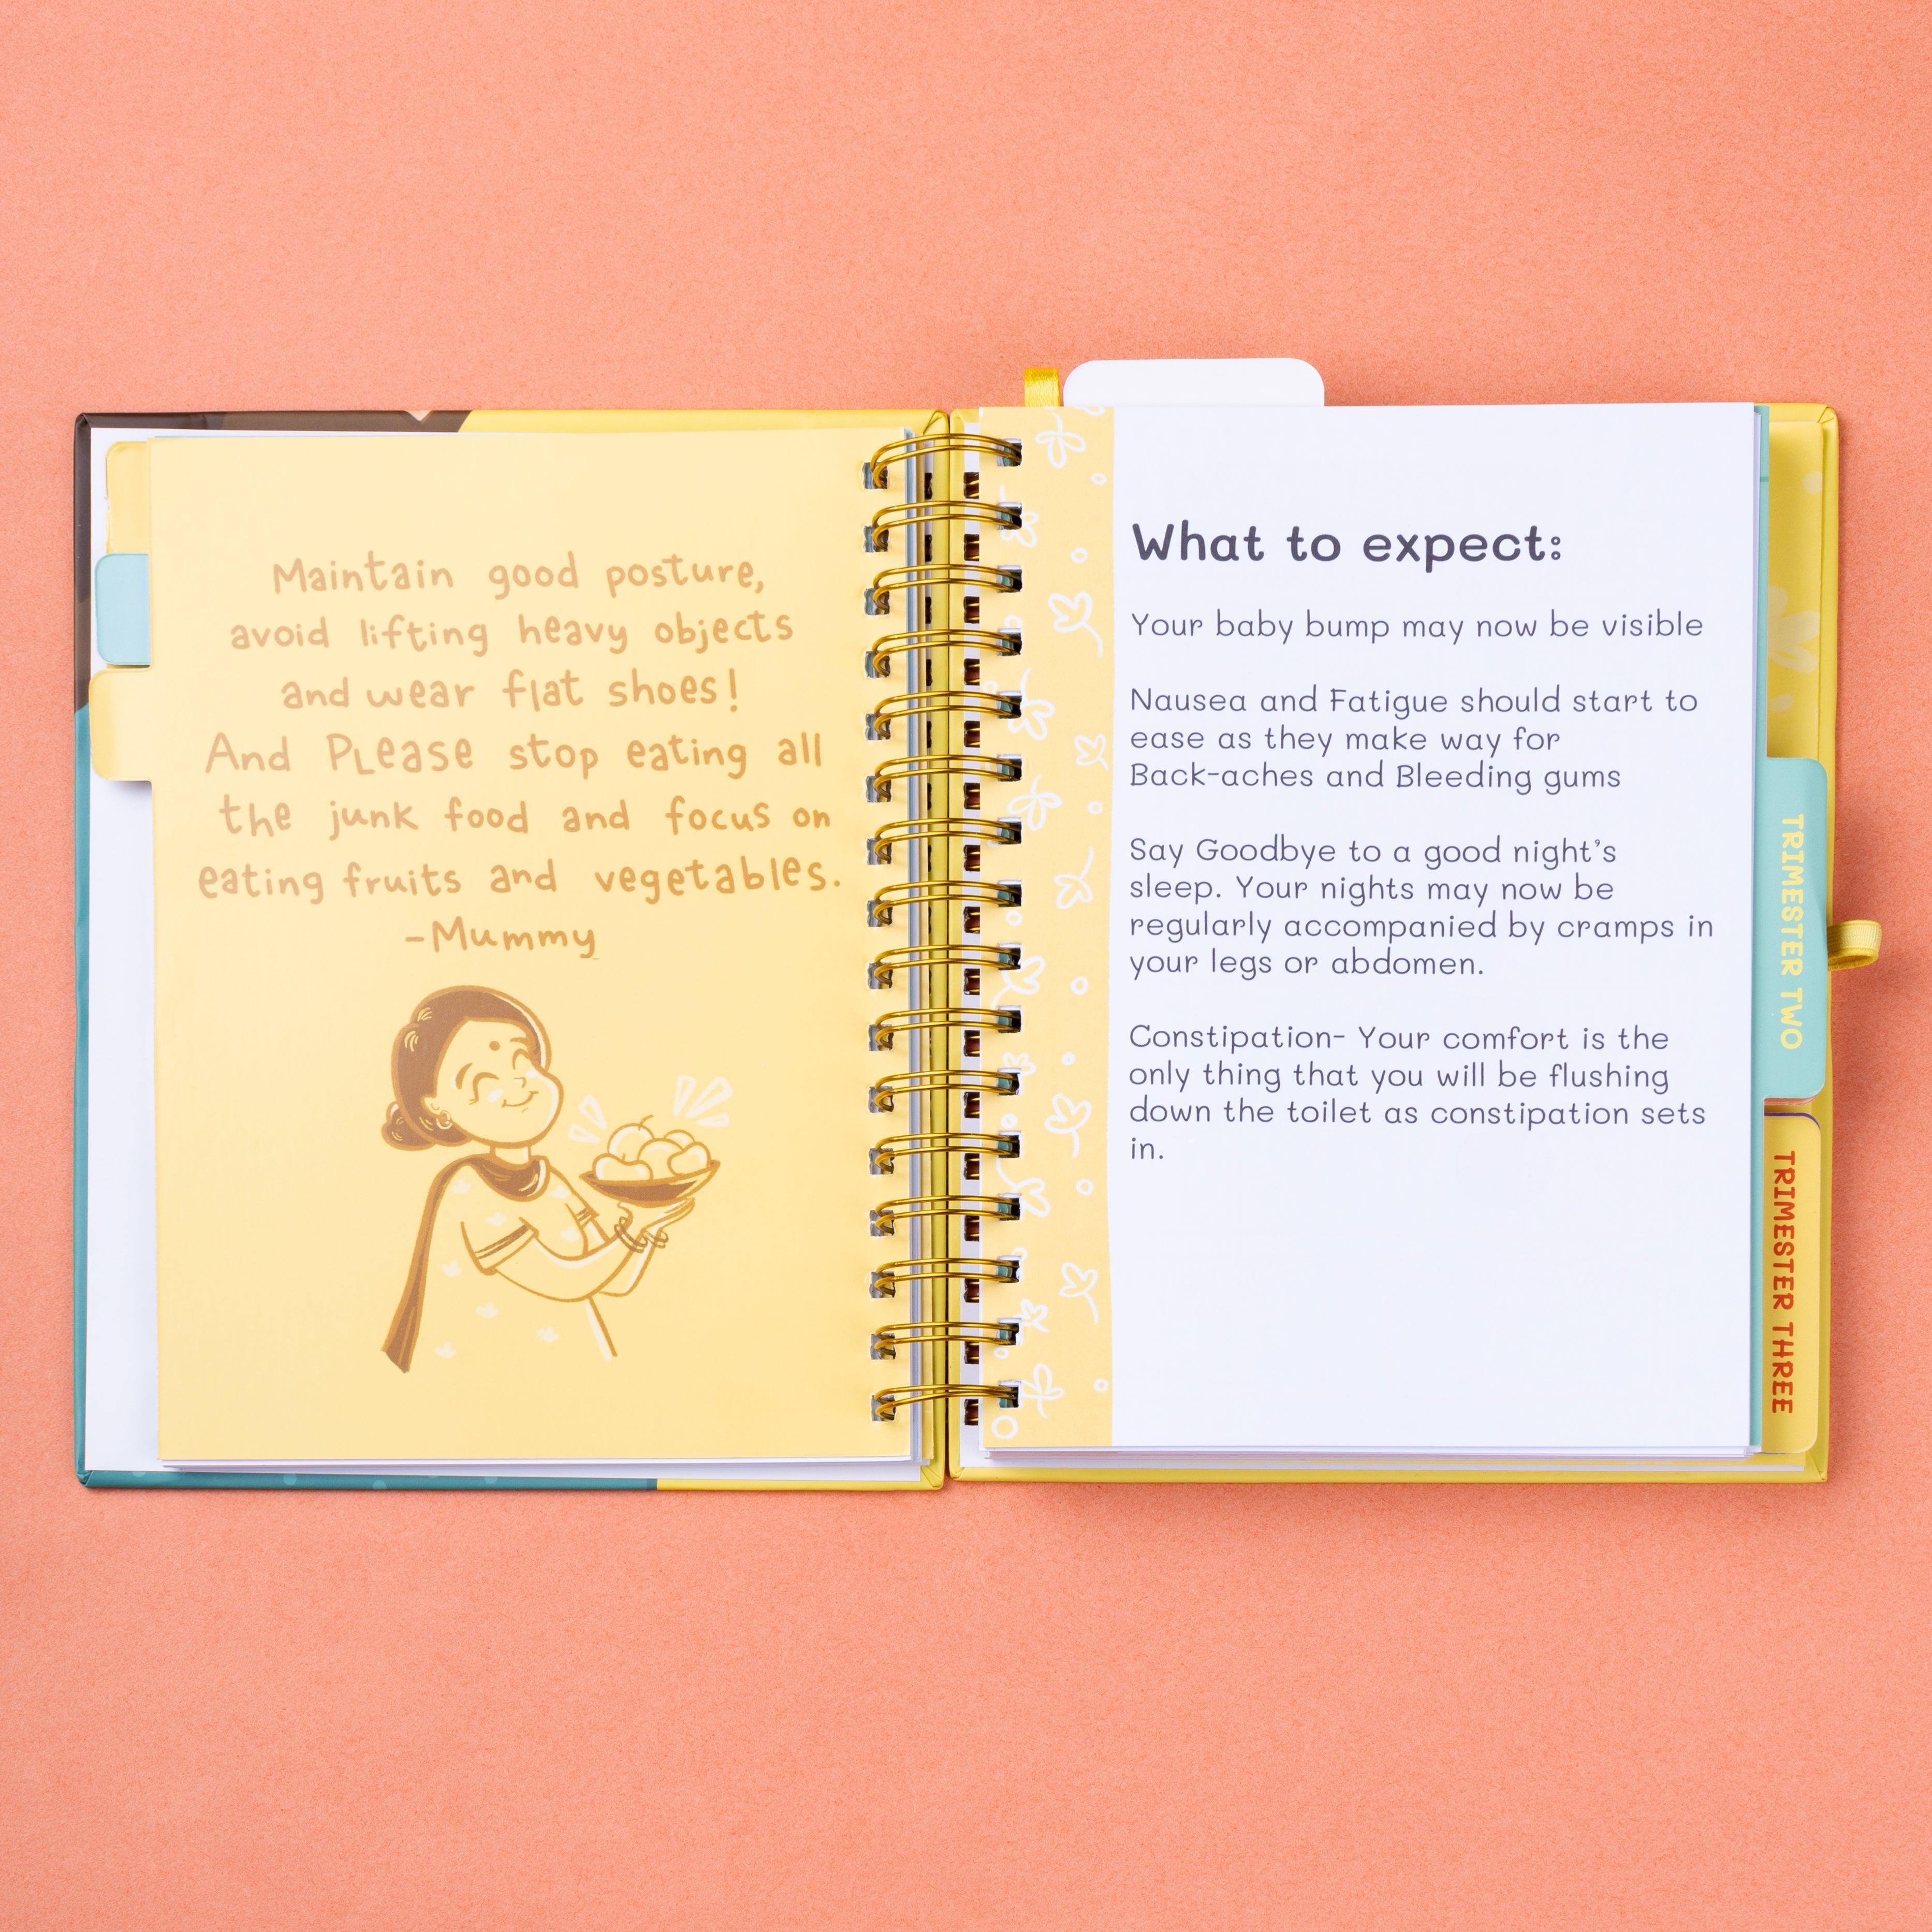 Maintain good posture,
avoid lifting heavy objects
and wear flat shoes!
And PLease stop eating all
the junk food and focus on
eating fruits and vegetables.
-Mummy
What to expect:
Your baby bump may now be visible
Nausea and Fatigue should start to
ease as they make way for
Back-aches and Bleeding gums
Say Goodbye to a good night's
sleep. Your nights may now be
regularly accompanied by cramps in
your legs or abdomen.
Constipation- Your comfort is the
only thing that you will be flushing
down the toilet as constipation sets
in.
TRIMESTER TWO
TRIMESTER THREE